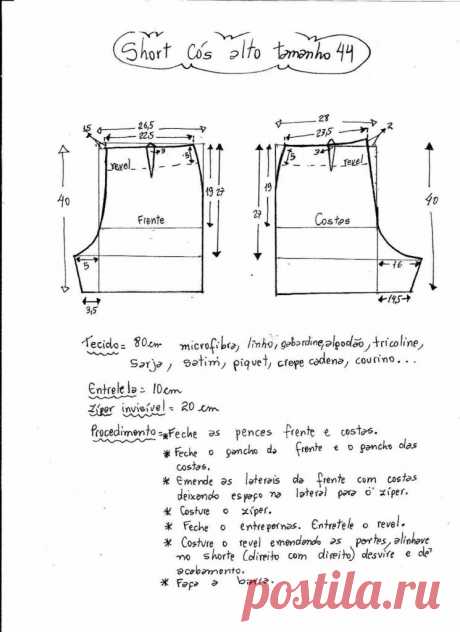 Short cós alto tamanho 44
26,5
28
1,5
22,5
23,5
2
3
5
5
3
revel
revel
40
19
27
27
19
40
Frente
Costas
5
16
3,5
14,5
Tecido = 80cm microfibra, linho, gabardine, algodão, tricoline,
sarja, satim, piquet, crepe cadena, courino...
Entretela = 10cm
Zíper invisível = 20 cm
Procedimento = * Feche as pences frente e costas.
* Feche o gancho da frente e o gancho das
costas.
* Emende as laterais da frente com costas
deixando espaço na lateral para o zíper.
* Costure o zíper.
* Feche o entrepernas. Entretele o revel.
* Costure o revel emendando as partes, alinhave
no shorte (direito com direito) desvire e dê
acabamento.
* Faça a barra.
postila.ru